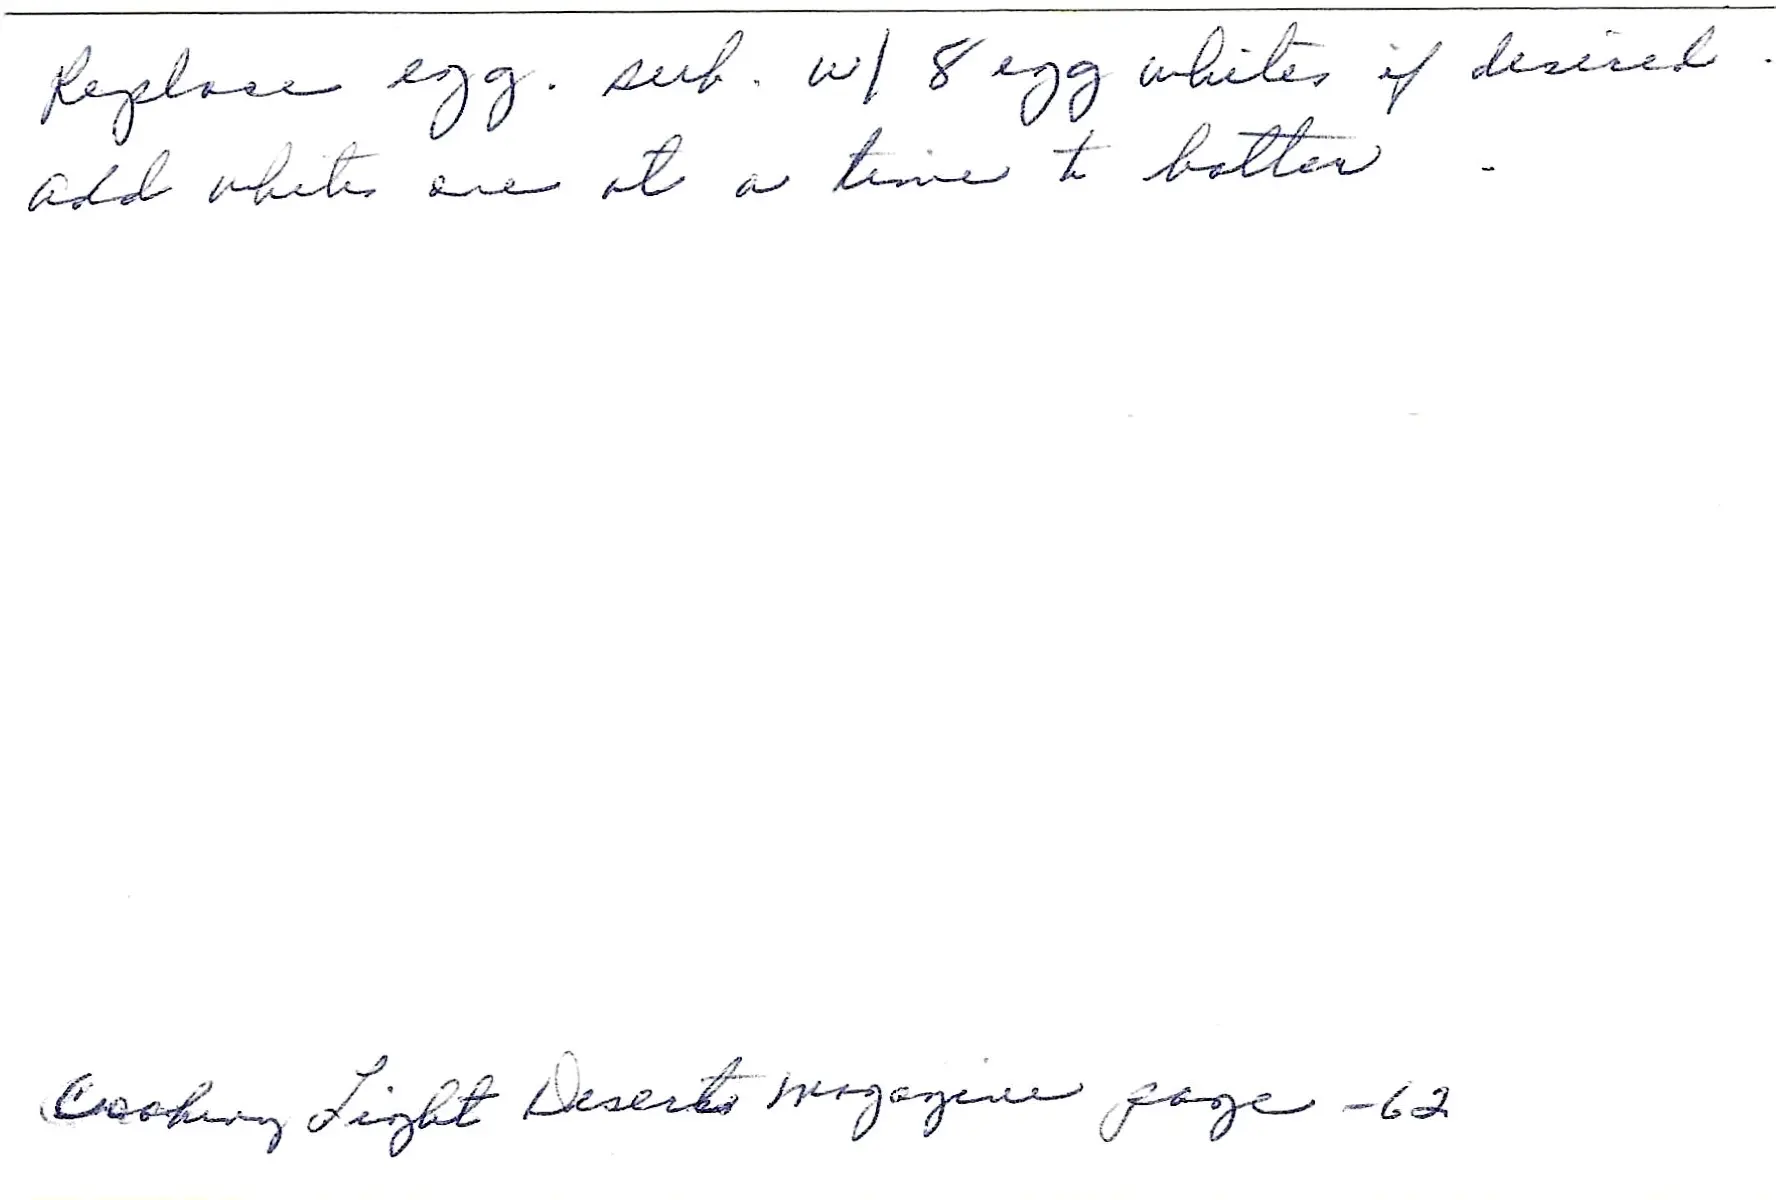 Replace egg. sub. w/ 8 egg whites if desired.
add whites one at a time to batter.
Cooking Light Deserts magazine page -62